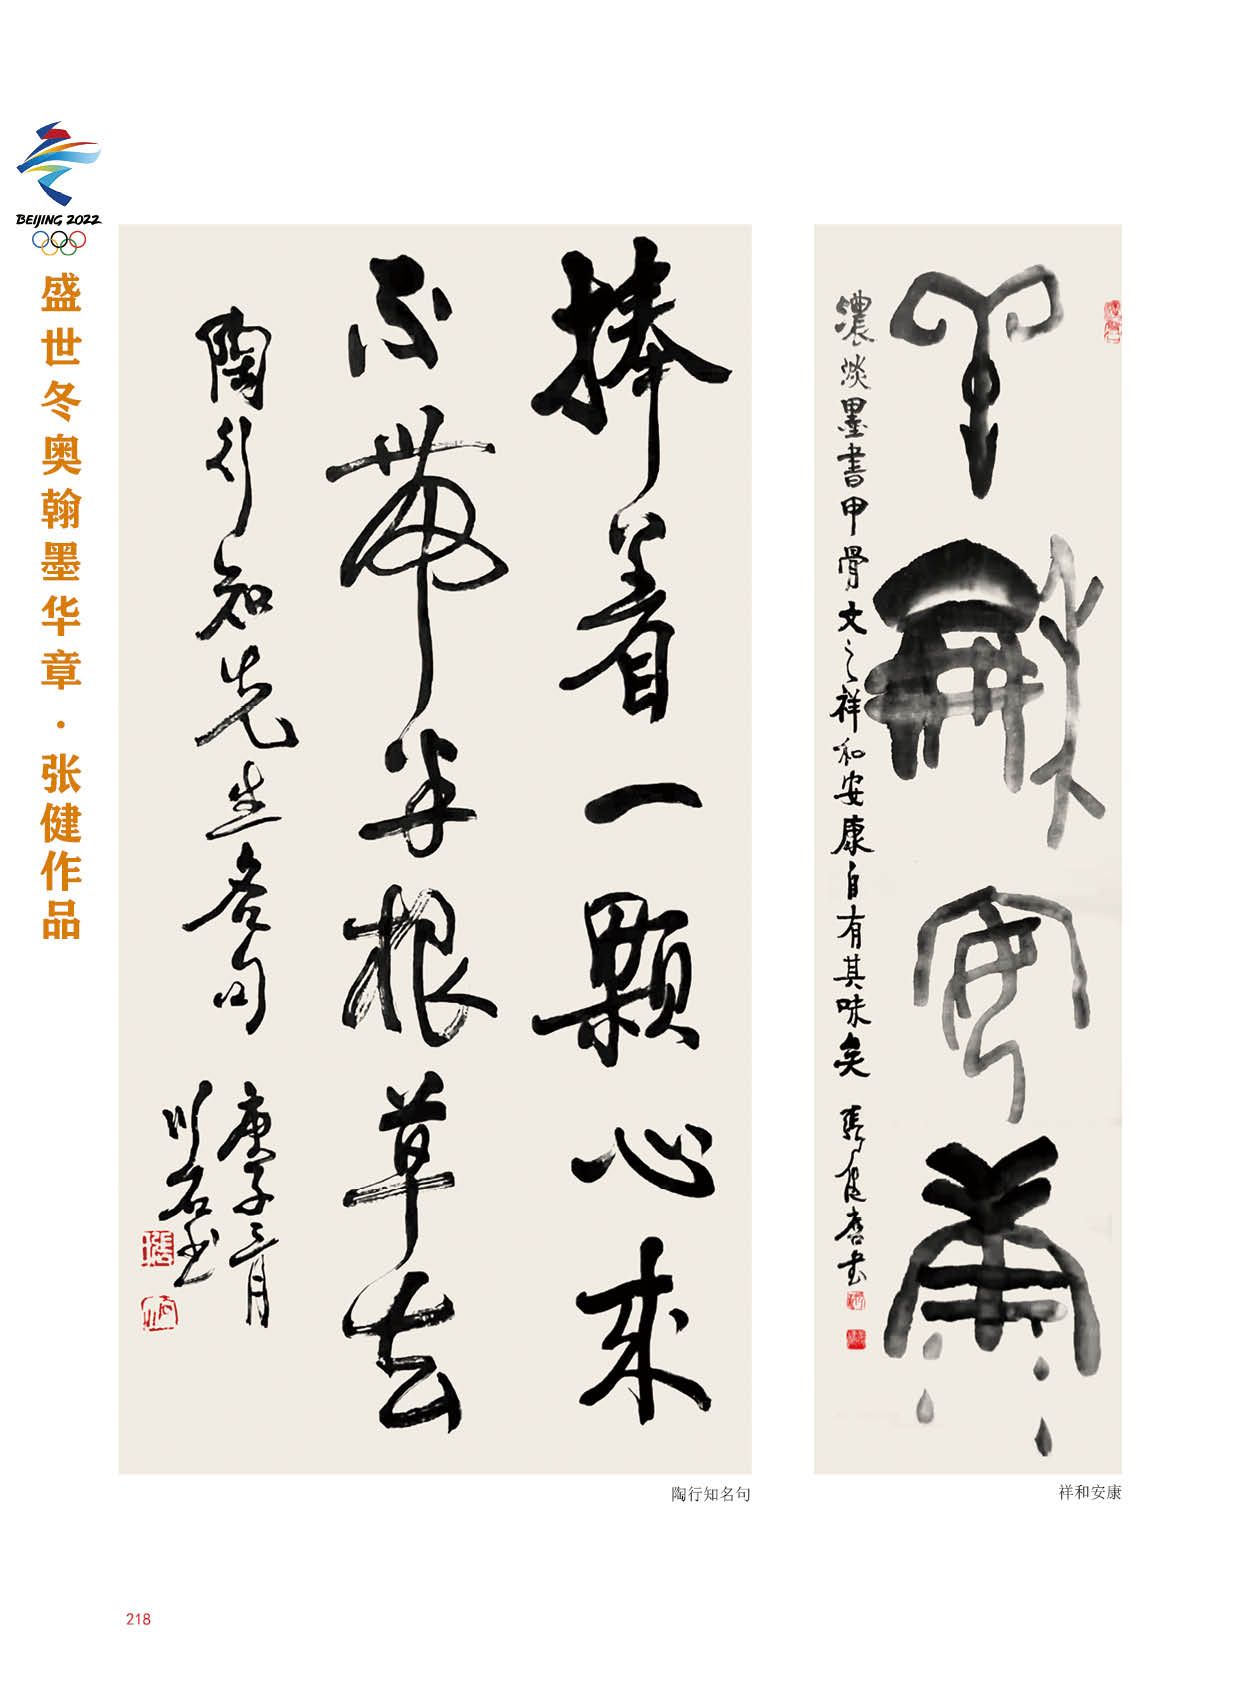 BEIJING 2022
盛世冬奥翰墨华章·张健作品
祥龢安康
濃淡墨書甲骨文之祥和安康自有其味矣 張健书
捧着一颗心来
不带半根草去
陶行知先生名句
庚子三月
川石书
陶行知名句
祥和安康
218